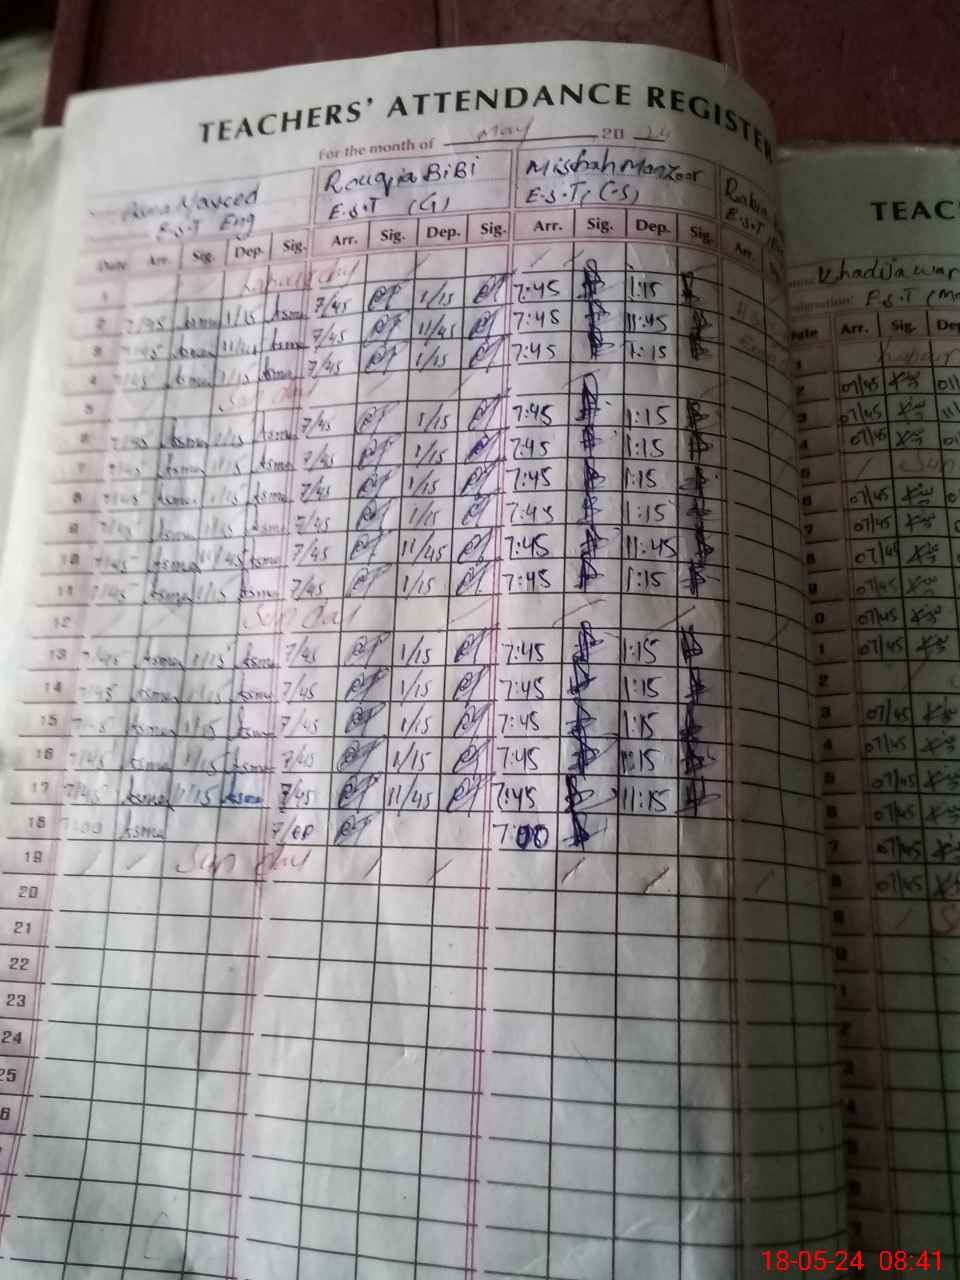 TEACHERS' ATTENDANCE REGISTER
For the month of May 20 24
Asma Naveed Rouqia BiBi Misbah Manzoor
E.S.T Eng E.S.T (G) E.S.T, (CS) E.S.T
Date Arr. Sig. Dep. Sig. Arr. Sig. Dep. Sig. Arr. Sig. Dep. Sig. Arr.
1 Labour day
2 7/45 Asma 1/15 Asma 7/45 1/15 7:45 1:15
3 7/45 Asma 11/45 Asma 7/45 11/45 7:45 11:45
4 7/45 Asma 1/15 Asma 7/45 1/15 7:45 1:15
5 Sun day
6 7/45 Asma 1/15 Asma 7/45 1/15 7:45 1:15
7 7/45 Asma 1/15 Asma 7/45 1/15 7:45 1:15
8 7/45 Asma 1/15 Asma 7/45 1/15 7:45 1:15
9 7/45 Asma 1/15 Asma 7/45 1/15 7:45 1:15
10 7/45 Asma 11/45 Asma 7/45 11/45 7:45 11:45
11 7/45 Asma 1/15 Asma 7/45 1/15 7:45 1:15
12 Sun day
13 7/45 Asma 1/15 Asma 7/45 1/15 7:45 1:15
14 7/45 Asma 1/15 Asma 7/45 1/15 7:45 1:15
15 7/45 Asma 1/15 Asma 7/45 1/15 7:45 1:15
16 7/45 Asma 1/15 Asma 7/45 1/15 7:45 1:15
17 7/45 Asma 1/15 Asma 7/45 11/45 7:45 11:15
18 7:00 Asma 7/00 7:00
19 Sun day
20
21
22
23
24
25
6
TEAC
Khadija
E.S.T
Arr. Sig. Dep
1
2 07/45
3 07/45
4 07/45
5 Sun
6 07/45
7 07/45
8 07/45
9 07/45
0 07/45
1 07/45
2
3 07/45
4 07/45
5 07/45
6 07/45
7 07/45
8 07/45
18-05-24 08:41